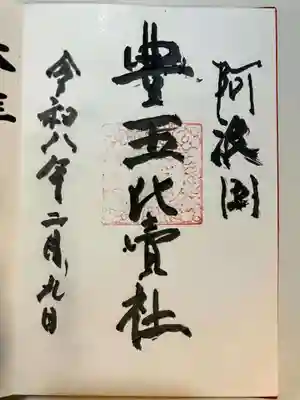 阿波国
豊玉比賣社
令和八年二月九日